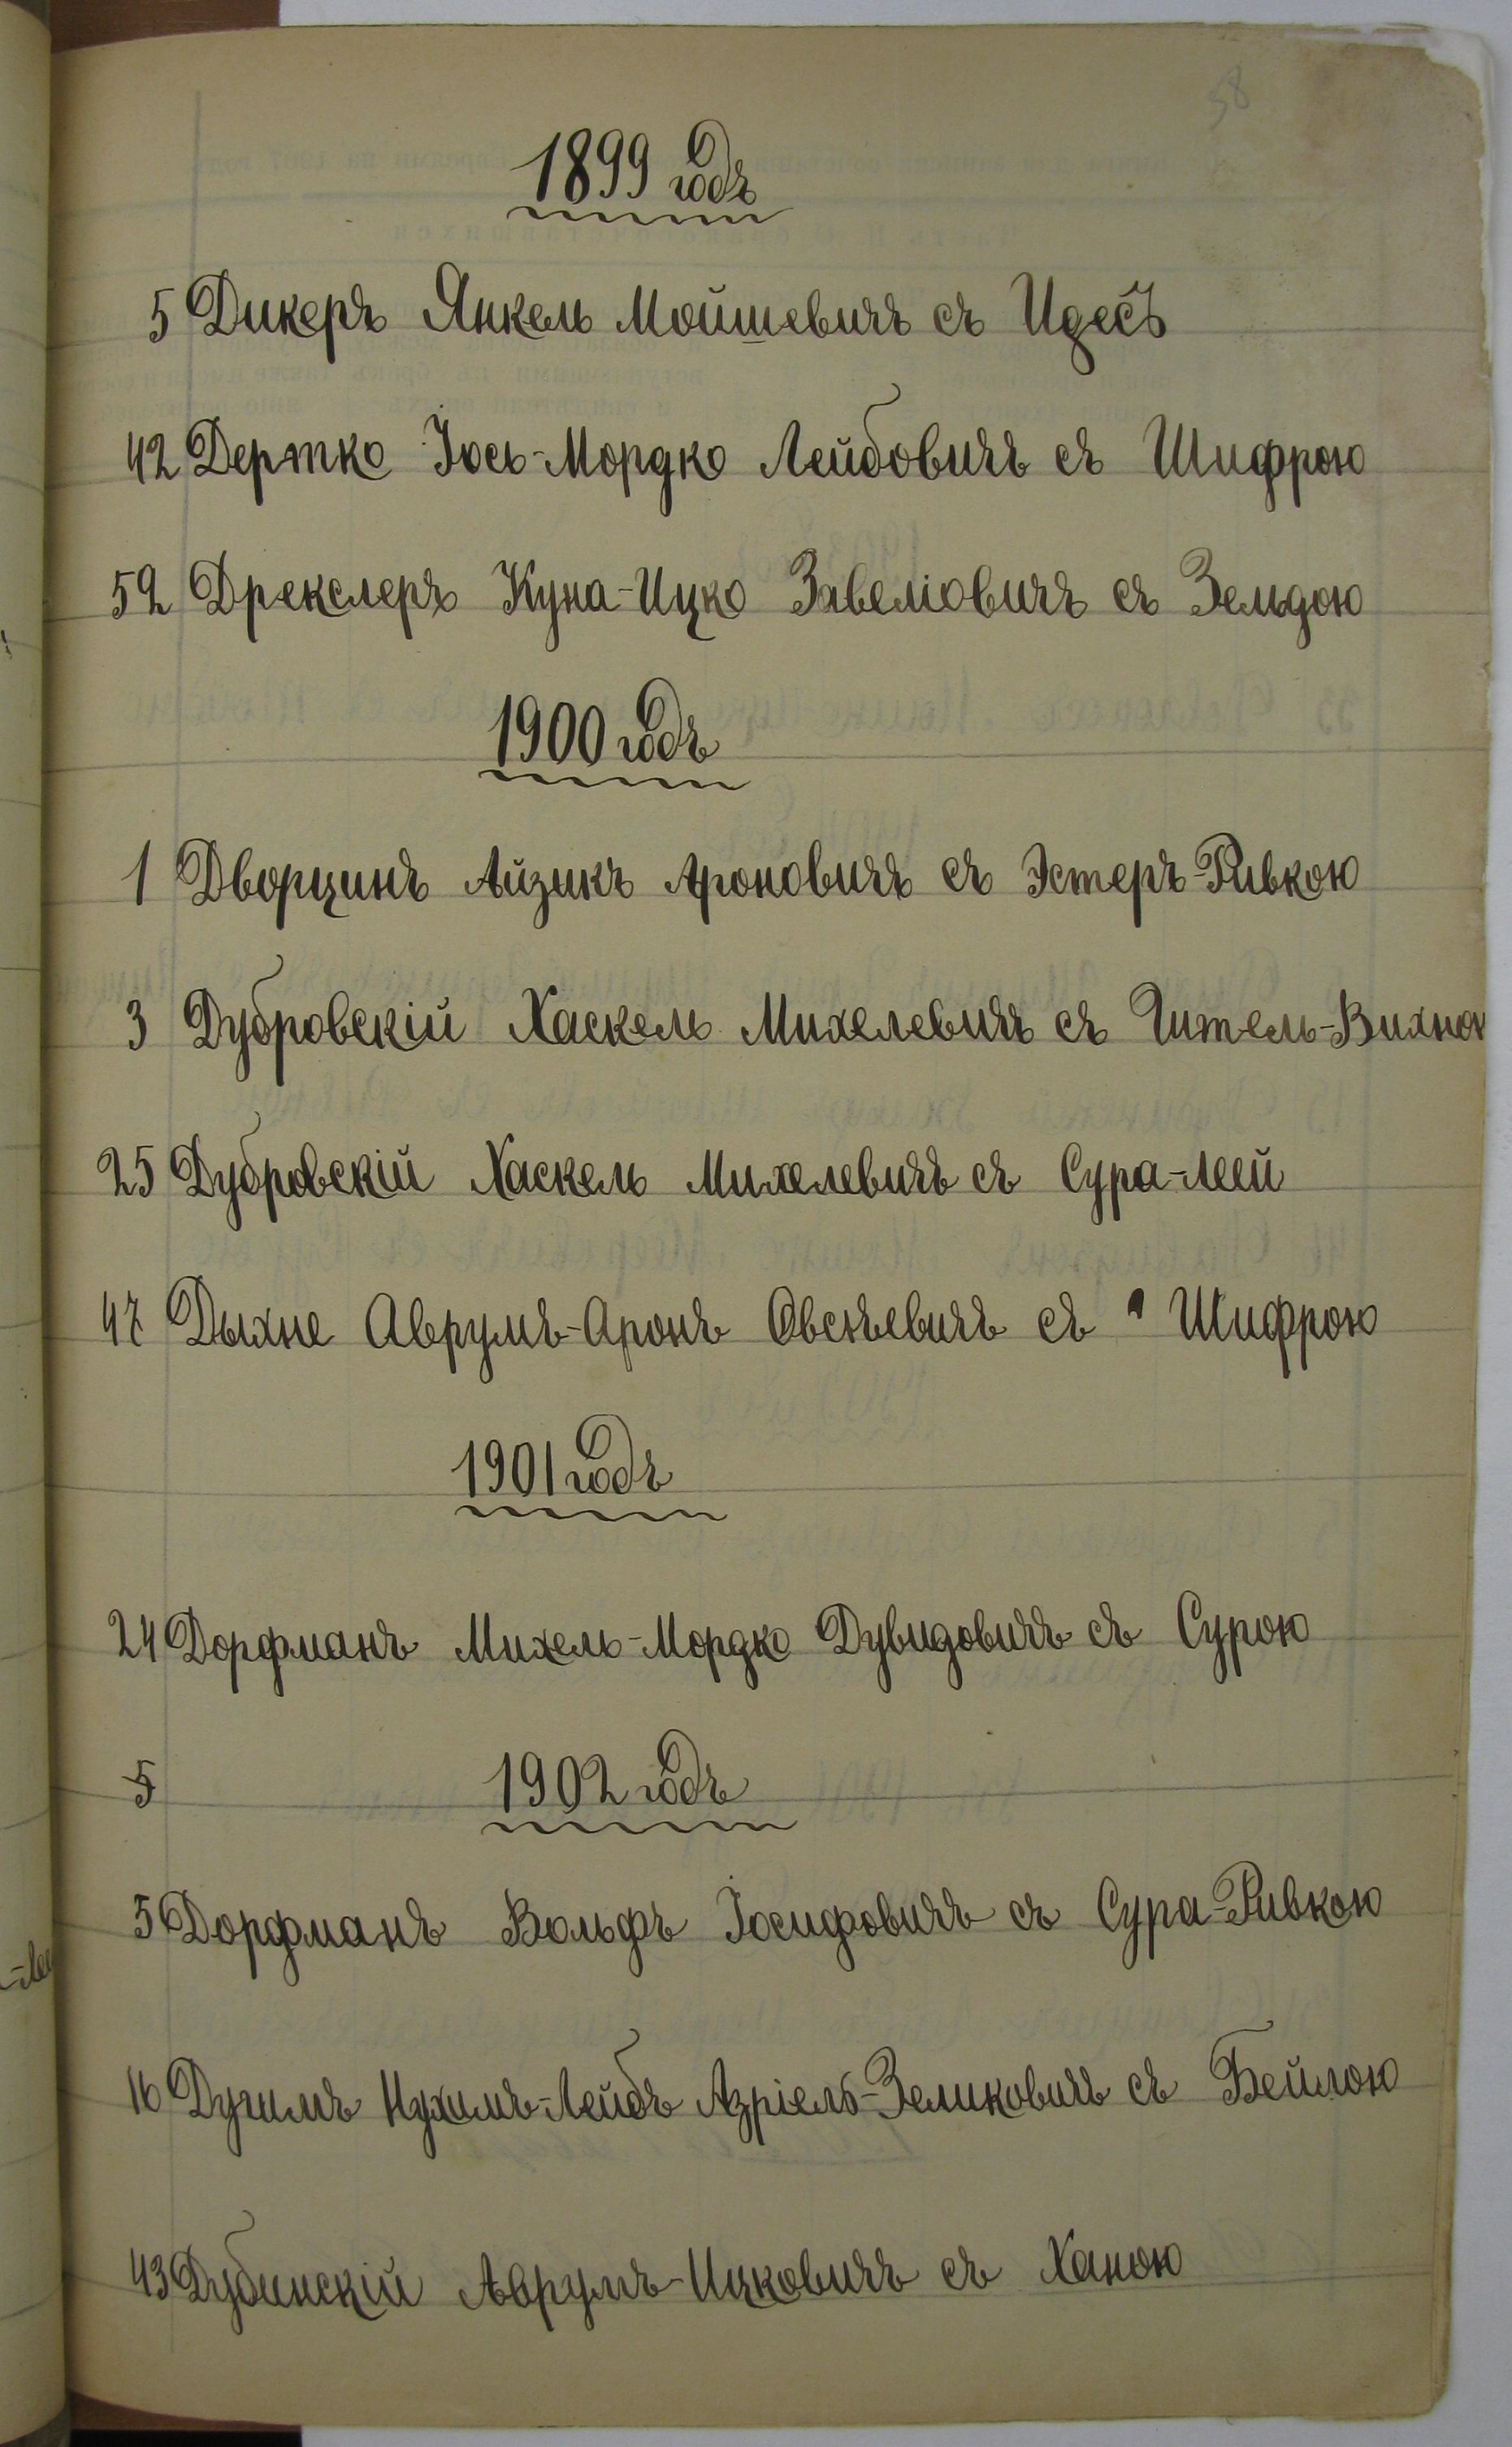 58
1899 годъ
5 Дикеръ Янкель Мойшевичъ съ Идесъ
42 Дертко Іось-Мордко Лейбовичъ съ Шифрою
52 Дрекслеръ Куна-Ицко Завеліовичъ съ Зельдою
1900 годъ
1 Дворцинъ Айзикъ Ароновичъ съ Эстеръ-Ривкою
3 Дубровскій Хаскель Михелевичъ съ Гитель-Вихною
25 Дубровскій Хаскель Михелевичъ съ Сура-Леей
47 Дыхне Аврумъ-Аронъ Овсѣевичъ съ Шифрою
1901 годъ
24 Дорфманъ Михель-Мордко Дувидовичъ съ Сурою
5 1902 годъ
5 Дорфманъ Вольфъ Іосифовичъ съ Сура-Ривкою
16 Дугимъ Нухимъ-Лейбъ Азріель-Зеликовичъ съ Бейлою
43 Дубинскій Аврумъ-Ицковичъ съ Ханою